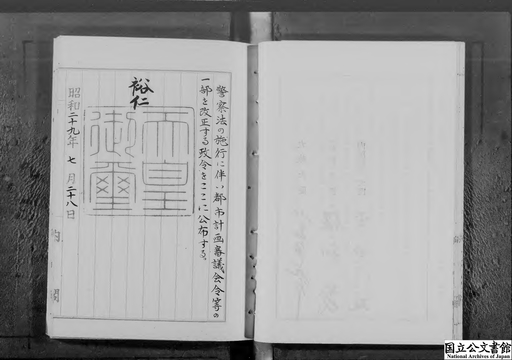 警察法の施行に伴い都市計画審議会令等の
一部を改正する政令をここに公布する。
裕仁
天皇
御璽
昭和二十九年 七月二十八日
内閣
国立公文書館
National Archives of Japan